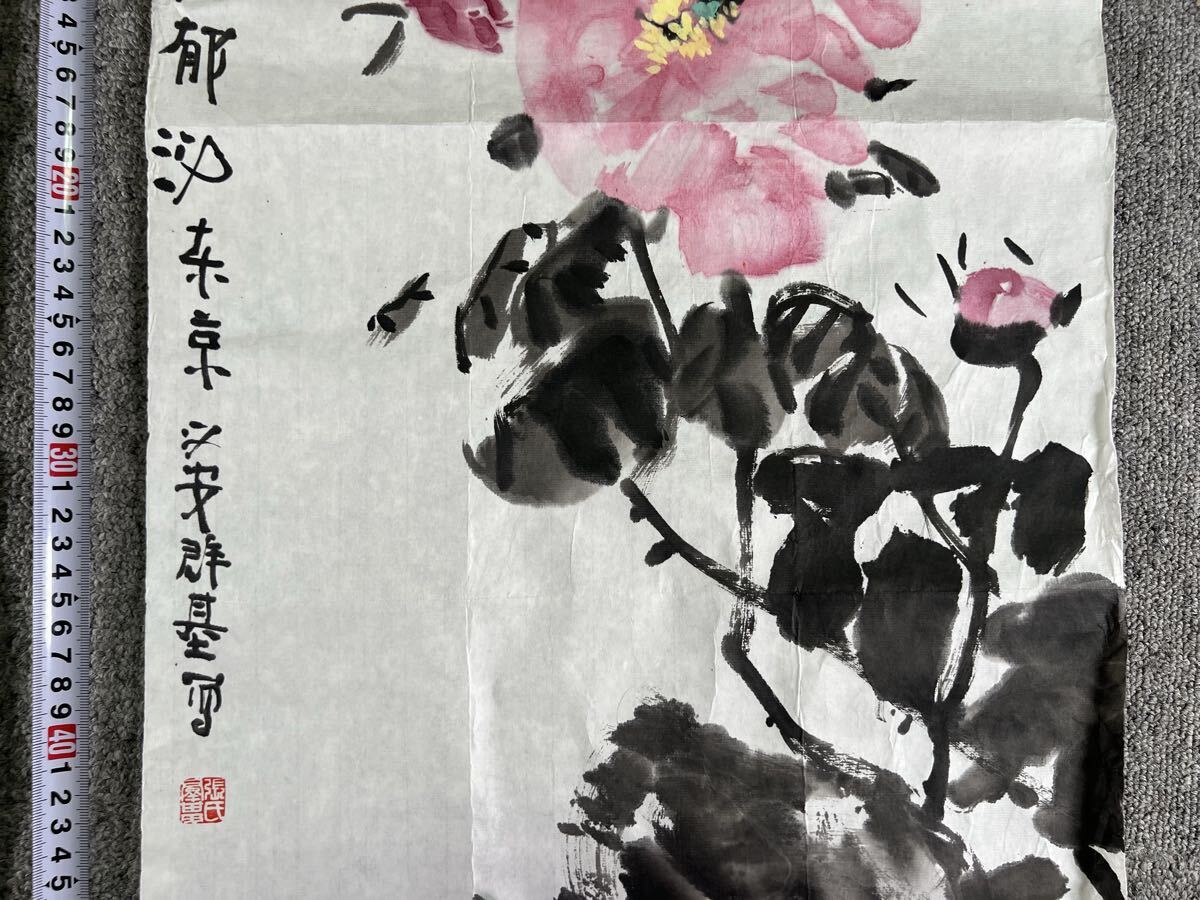 郁
东京
汉安群基写
張氏
3 4 5 6 7 8 9 20 1 2 3 4 5 6 7 8 9 30 1 2 3 4 5 6 7 8 9 40 1 2 3 4 5